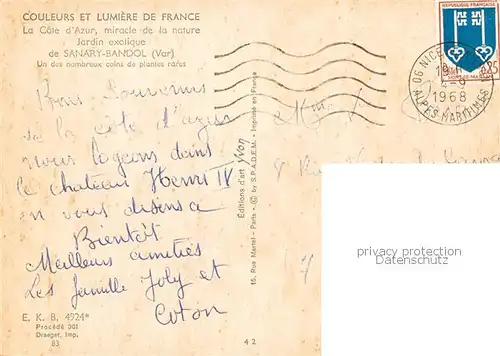 COULEURS ET LUMIÈRE DE FRANCE
La Côte d'Azur, miracle de la nature
Jardin exotique
de SANARY-BANDOL (Var)
Un des nombreux coins de plantes rares
Bons Souvenirs
de la côte d'azur
nous logeons dans
le chateau Henri IV
en vous disons a
Bientôt
Meilleurs amitiés
Les famille Joly et
Coton
E. K. B. 4924*
Procédé 301
Draeger, Imp.
83
Éditions d'art yvon
15, Rue Martel - Paris - © by S.P.A.D.E.M. - Imprimé en France
42
RÉPUBLIQUE FRANÇAISE
MONT-DE-MARSAN
06 NICE
1968
ALPES-MARITIMES
privacy protection
www.ansichtskarten-center.de